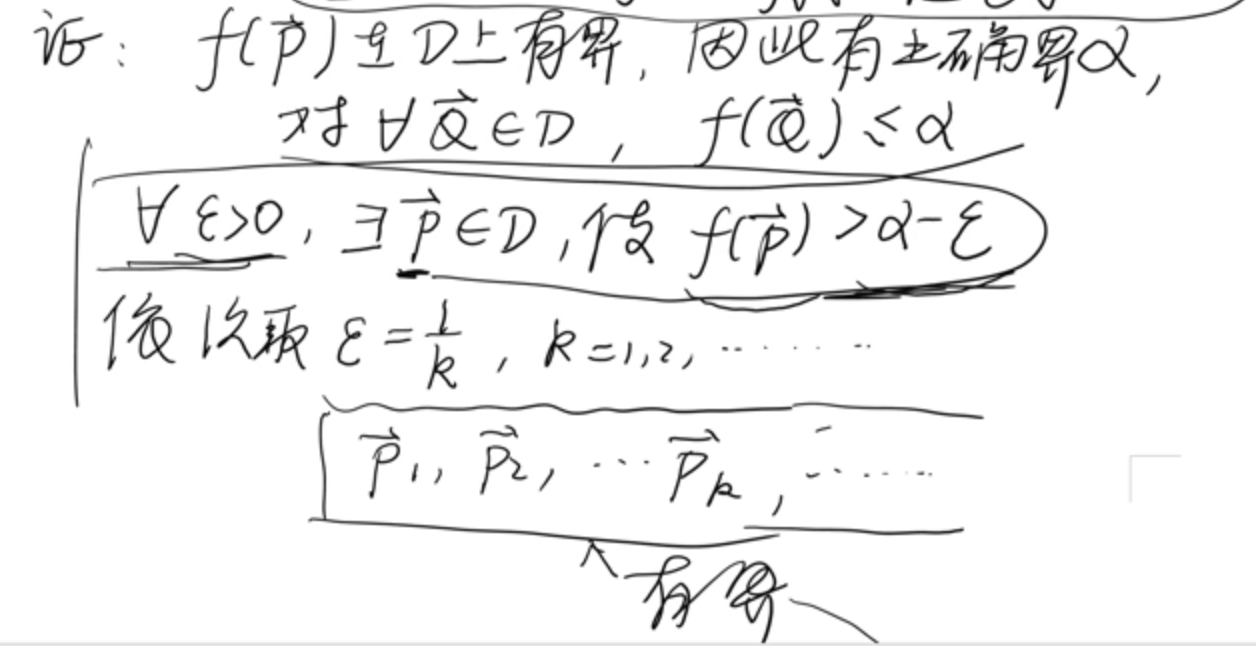 证: f(p⃗)在D上有界, 因此有上确界α,
对 ∀Q⃗∈D, f(Q⃗)≤α
∀ε>0, ∃p⃗∈D, 使 f(p⃗)>α-ε
依次取 ε=1/k, k=1,2,……
p⃗₁, p⃗₂, … p⃗ₖ, ……
有界